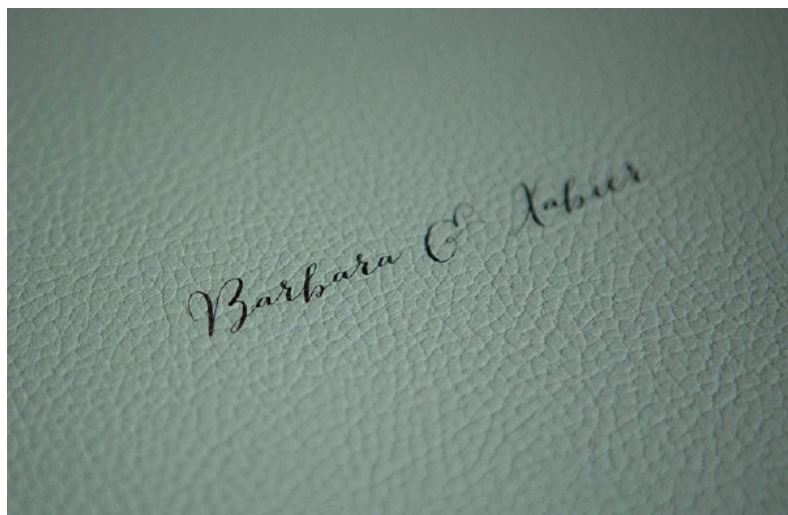 Barbara & Xabier